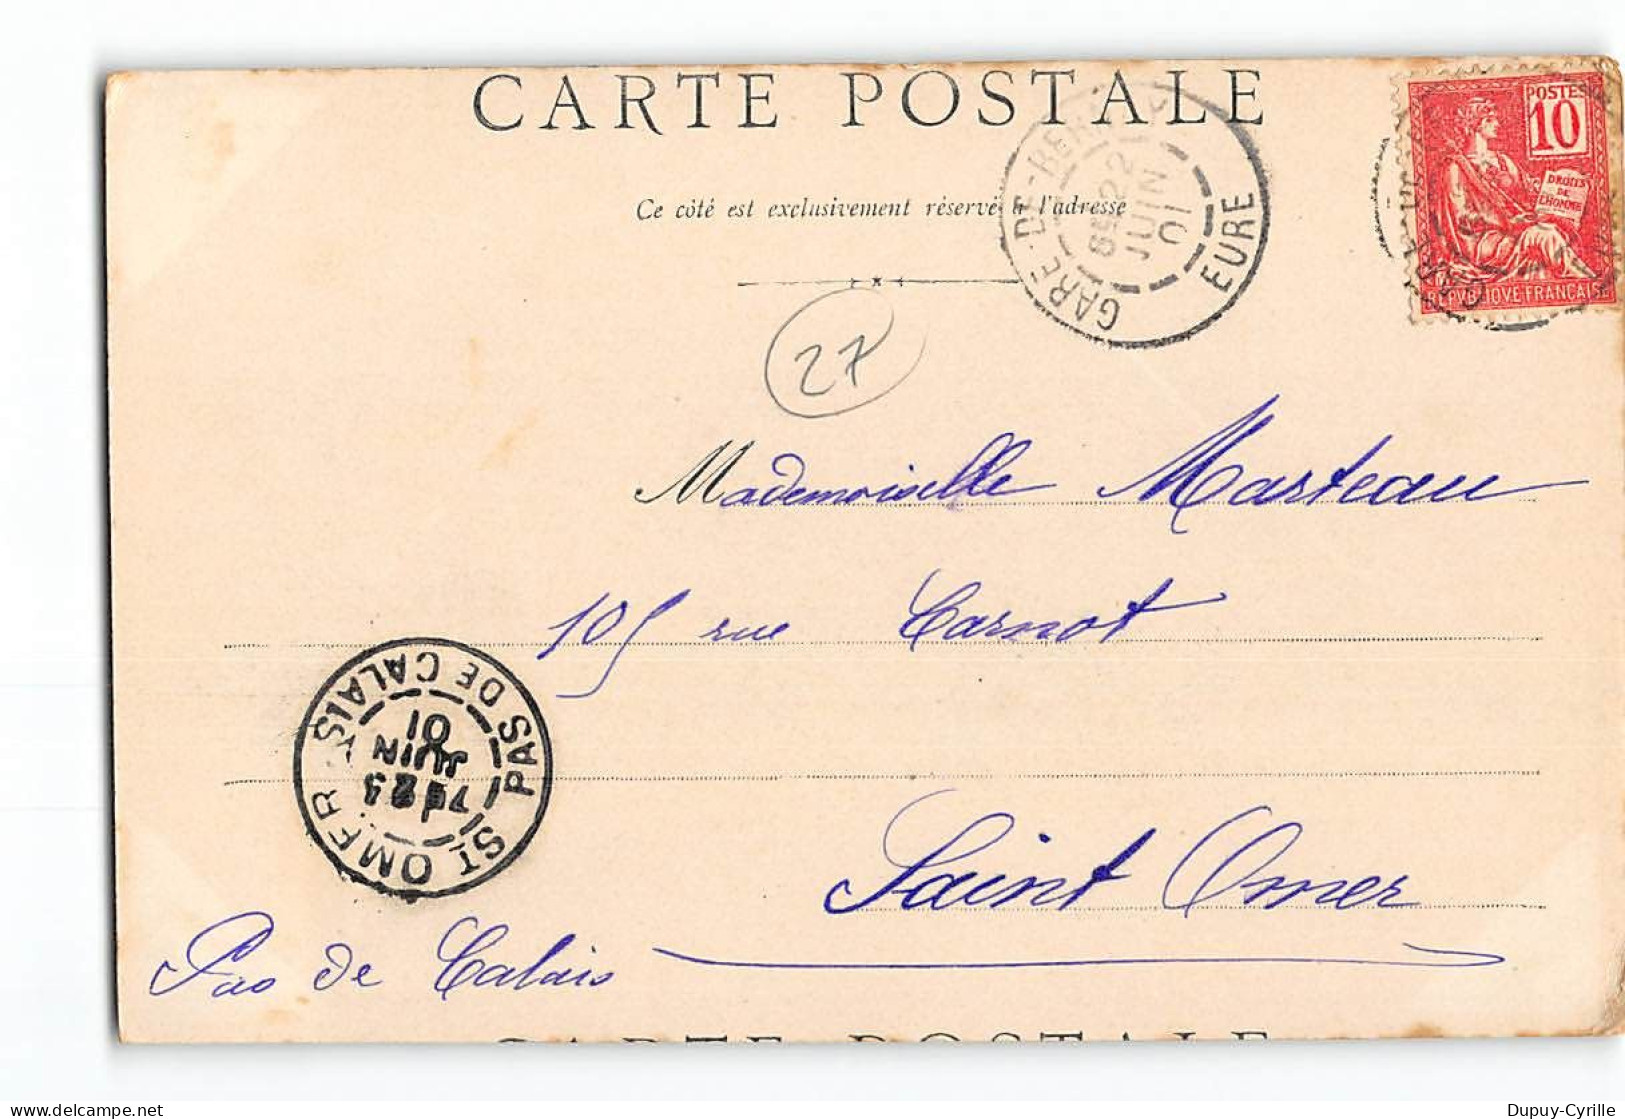 CARTE POSTALE
Ce côté est exclusivement réservé à l'adresse
GARE-DE-BERNAY
8E 22
JUIN
01
EURE
POSTES
10
DROITS
DE
L'HOMME
REPVBLIQVE FRANÇAISE
27
Mademoiselle Marteau
105 rue Carnot
ST OMER
PAS DE CALAIS
7E 23
JUIN
01
Saint Omer
Pas de Calais
CARTE POSTALE
Dupuy-Cyrille